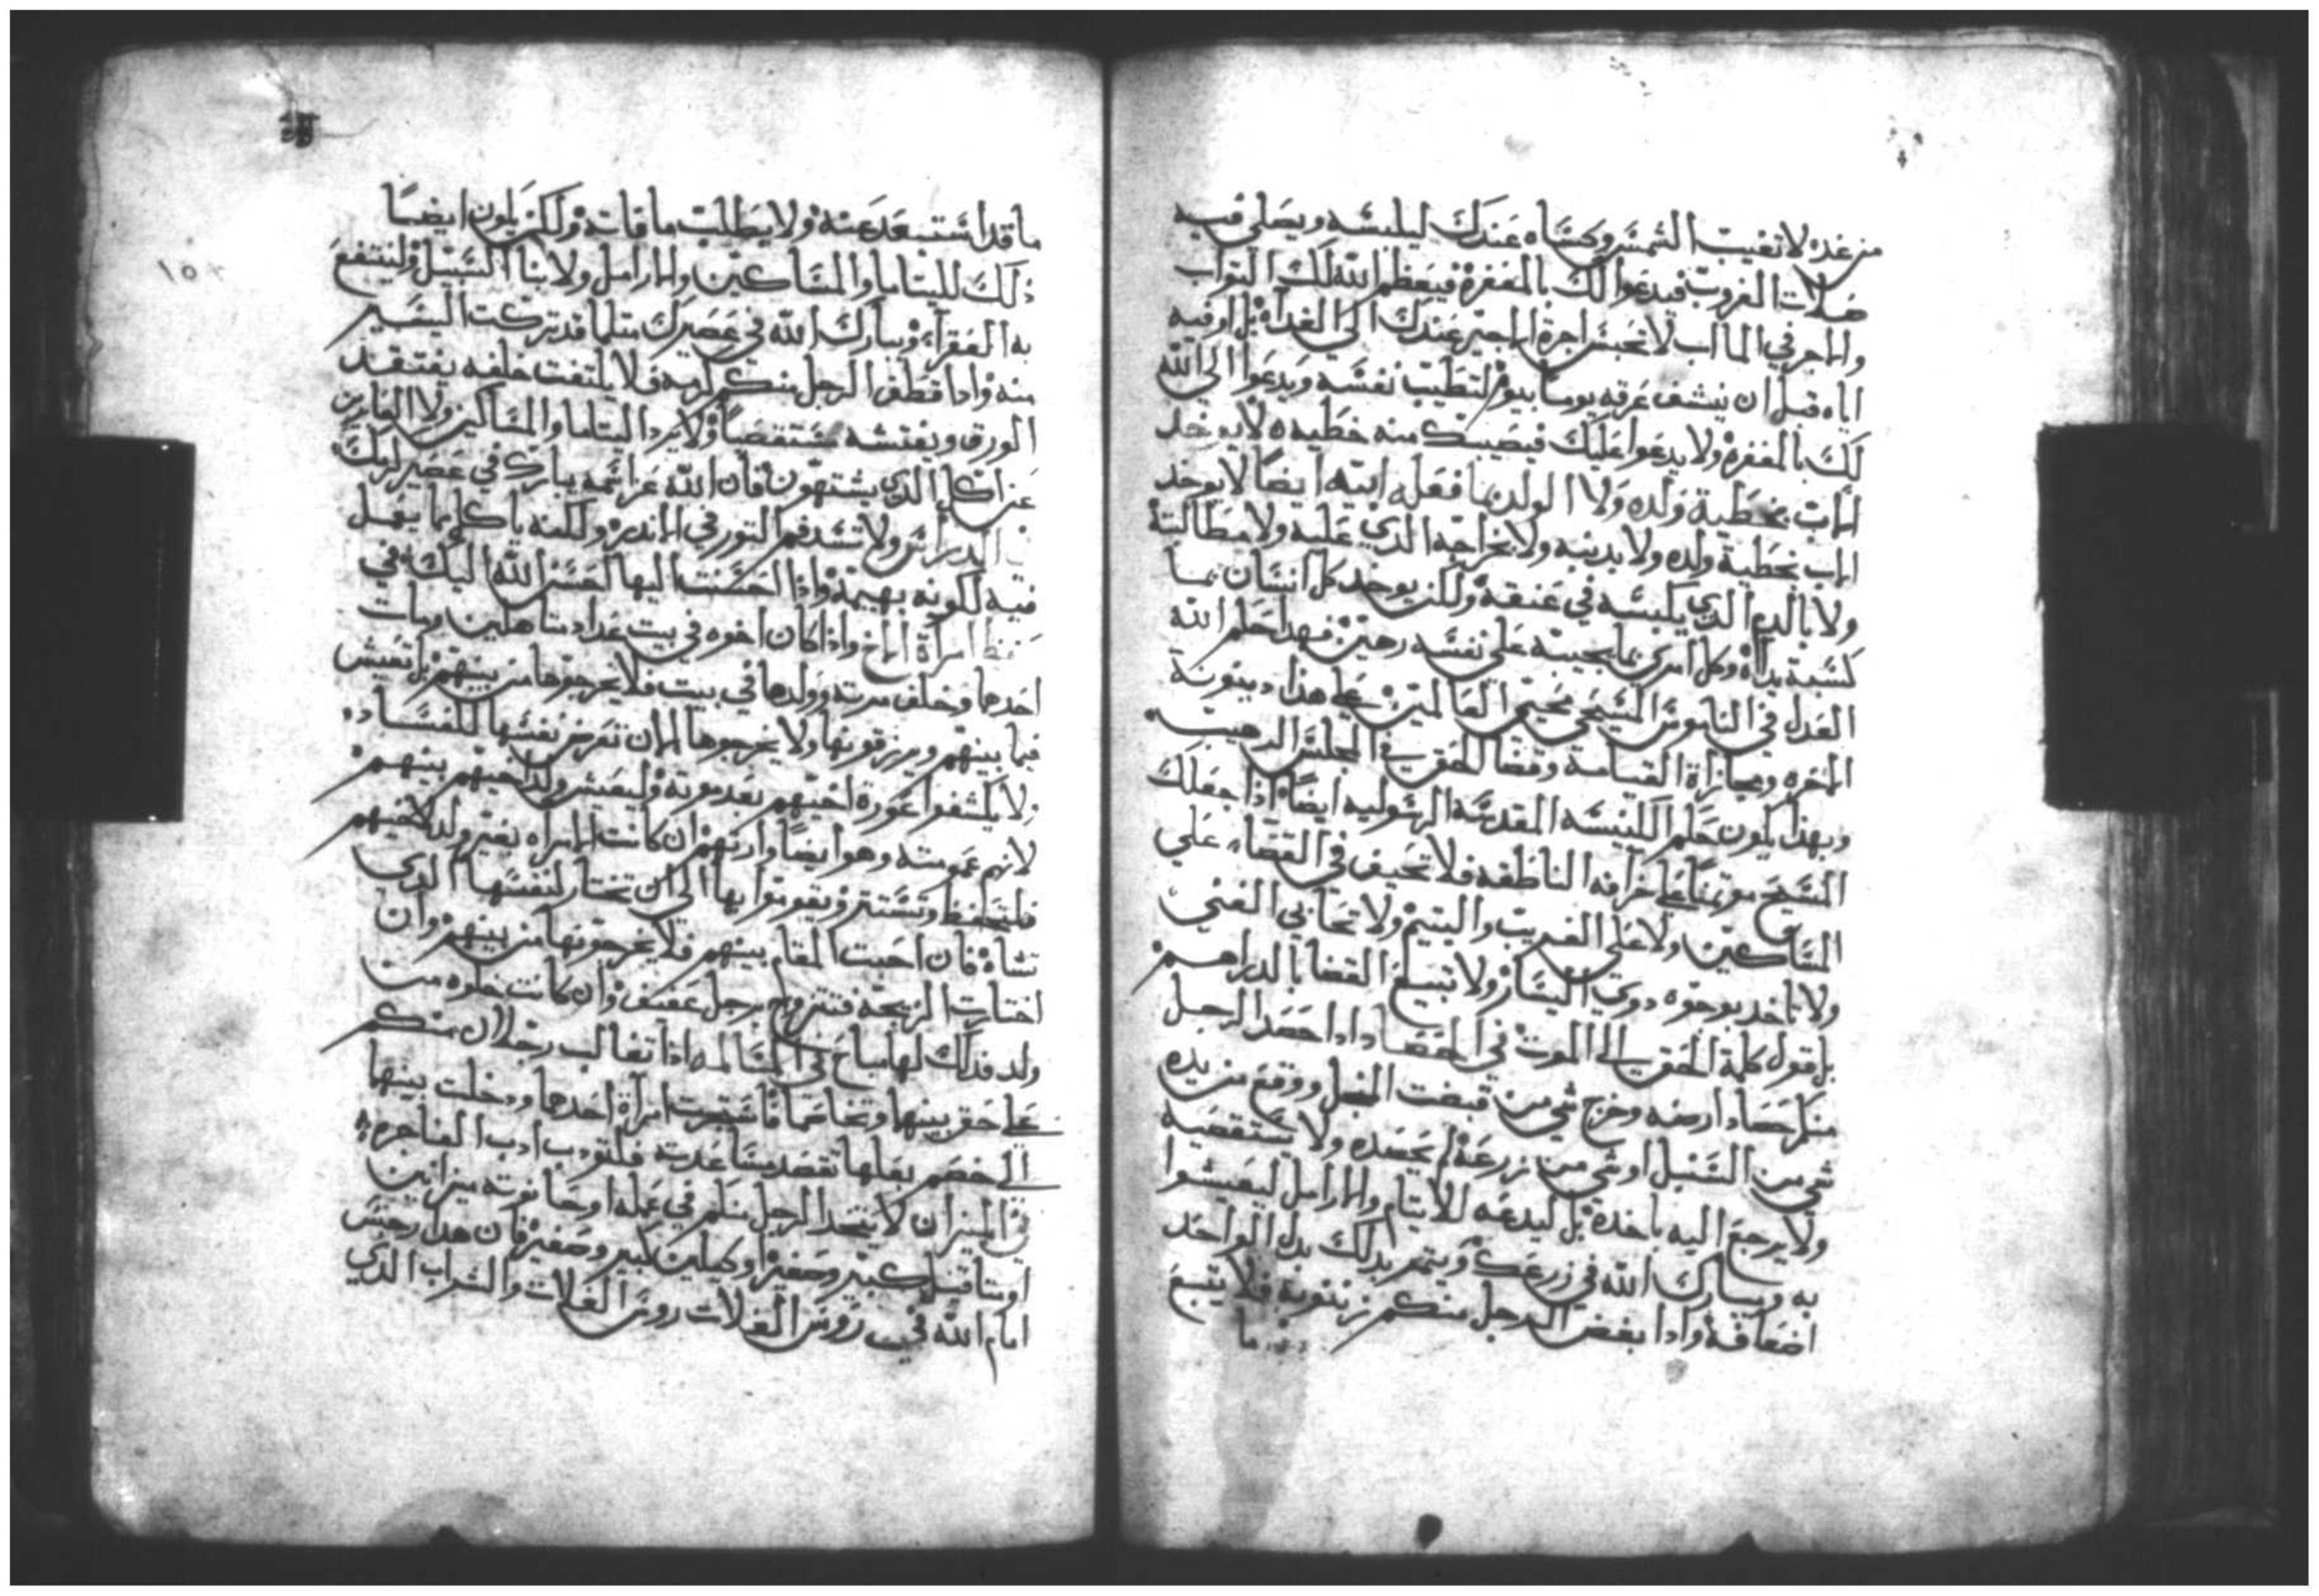 من غده لا تغيب الشمس وكساه عندك ليلبسه ويصلي فيه
صلات الغروب فيدعوا لك بالمغفرة فيعظم الله لك التواب
والاجر في الماب لا تحبس اجرة الاجير عندك الي الغداه بل اوفيه
اياه قبل ان ينشف عرقه يوما بيوم لتطيب نفسه ويدعوا الي الله
لك بالمغفرة ولا يدعوا عليك فيصيبك منه خطيه ه لا يوخد
الاب بخطية ولده ولا الولد بما فعله ابيه ايضا لا يوخد
الاب بخطية ولده ولا بدينه ولا بخراجه الدي عليه ولا مطالبته
ولا بالدم الدي يلبسه في عنقه ولكن يوخد كل انسان بما
كسبة يداه وكل امري بما يجيبه علي نفسه رهين فهدا حلم الله
العدل في الناموس المسيحي محيي العالمين علي هذا دينونة
الاخره ومجازاة القيامة وقضا الحق في المجلس الرهيب
وبهذا يكون حلم الكنيسه المقدسة الرسوليه ايضا اذا جعلك
المسيح موتمنا علي خرافه الناطقه فلا تحيف في القضاء علي
المساكين ولا علي الغريب واليتيم ولا تحابي الغني
ولا تاخد بوجوه دوي اليسار ولا تبيع القضا بالدراهم
بل قول كلمة الحق الي الموت في الحصاد ادا حصد الرجل
منكم حصاد ارضه وخرج شي من قبضت المنجل ووقع من يده
شي من السنبل او شي من زرعه لم يحصده ولا يستقصيه
ولا يرجع اليه ياخده بل ليدعه للايتام والارامل ليعيشوا
به ويبارك الله في زرعك ويتمر بدلك بدل الواحد
اضعافه وادا نفض الرجل منكم زيتونه فلا يتبع
ما
ما قد استبعد عنه ولا يطلب ما فاته ولكن يكون ايضا
ذلك لليتاما والمساكين والارامل ولابنا السبيل ولينتفع
به الفقراء ويبارك الله في عصيرك متلما قد تركت اليسير
منه وادا قطف الرجل منكم كرمه فلا يلتفت خلفه يفتقد
الورق ويفتشه مستقصيا ولا يرد اليتاما والمساكين ولا العابرين
عن اكل الدي يشتهون فان الله عز اسمه يبارك في عصير كرمك
الدراس ولا تشد فم التور في الاندر ولكنه ياكل مما يعمل
فيه لكونه بهيمة واذا احسنت اليها احسن الله اليك في
امراة الاخ واذا كان اخوه في بيت عدا متاهلين ومات
احدها وخلف مرته وولدها في بيت فلا يخرجوها من بينهم بل تعيش
فيما بينهم ويرزقونها ولا يخرجوها لان تعرض نفسها للفساد
لا يكشفوا عورة اخيهم بعد موته وليعيش ولد اخيهم بينهم
لانهم عمومته وهو ايضا وارتهم ان كانت الامراه بغير ولد لاخيهم
فلتحفظ وتستتر ويقوتوا بها الي ان تختار لنفسها الدي
تشاه فان احبت المقام بينهم فلا يخرجونها من بينهم وان
اختارت الزيجة فتتزوج برجل عفيف وان كانت خلوه من
ولد فدلك لها مباح في المسالمه اذا تغالب رجلان منكم
علي حق بينها وتخاصما فاستجرت امراة احدها ودخلت بينها
الي خصم بعلها تقصد مساعدته فلتودب ادب الفاجره
في الميزان لا يتخد الرجل منكم في عمله او حانوته ميزانين
او متاقيل كبير وصغير او كيلين كبير وصغير فان هدا رجس
امام الله في روس الغلات روس الغلات والشراب الدي